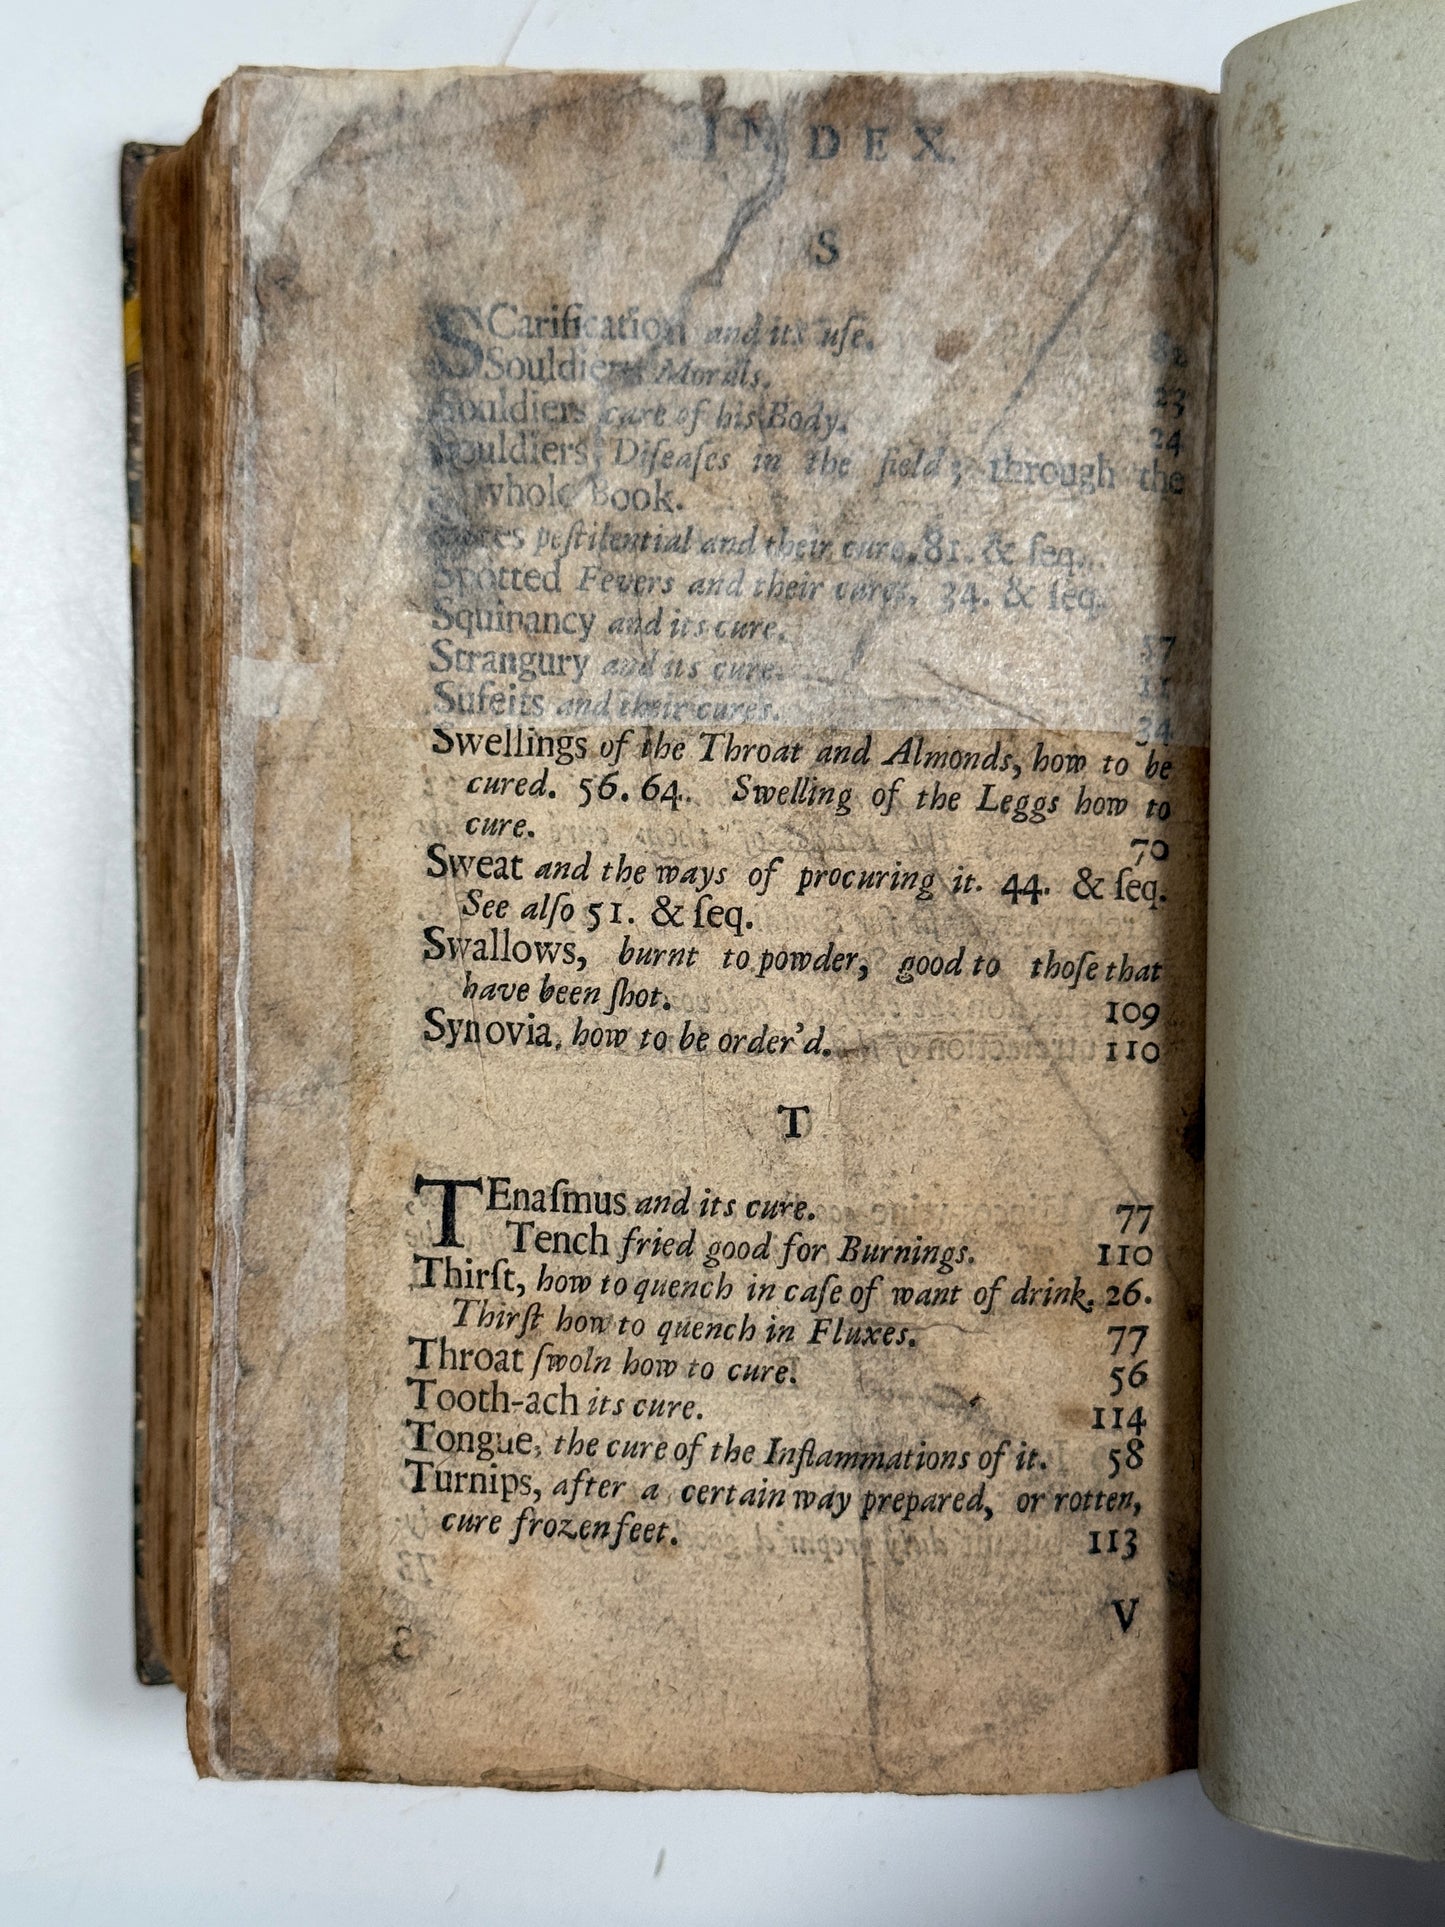 INDEX.
S
SCarification and its uſe. 82
Souldiers Morals. 23
Souldiers care of his Body. 24
Souldiers Diſeaſes in the field; through the
whole Book.
peſtilential and their cure. 81. & ſeq.
Spotted Fevers and their cures. 34. & ſeq.
Squinancy and its cure. 57
Strangury and its cure. 11
Sufeits and their cures. 34
Swellings of the Throat and Almonds, how to be
cured. 56. 64. Swelling of the Leggs how to
cure. 70
Sweat and the ways of procuring it. 44. & ſeq.
See alſo 51. & ſeq.
Swallows, burnt to powder, good to thoſe that
have been ſhot. 109
Synovia, how to be order'd. 110
T
TEnaſmus and its cure. 77
Tench fried good for Burnings. 110
Thirſt, how to quench in caſe of want of drink. 26.
Thirſt how to quench in Fluxes. 77
Throat ſwoln how to cure. 56
Tooth-ach its cure. 114
Tongue, the cure of the Inflammations of it. 58
Turnips, after a certain way prepared, or rotten,
cure frozen feet. 113
V